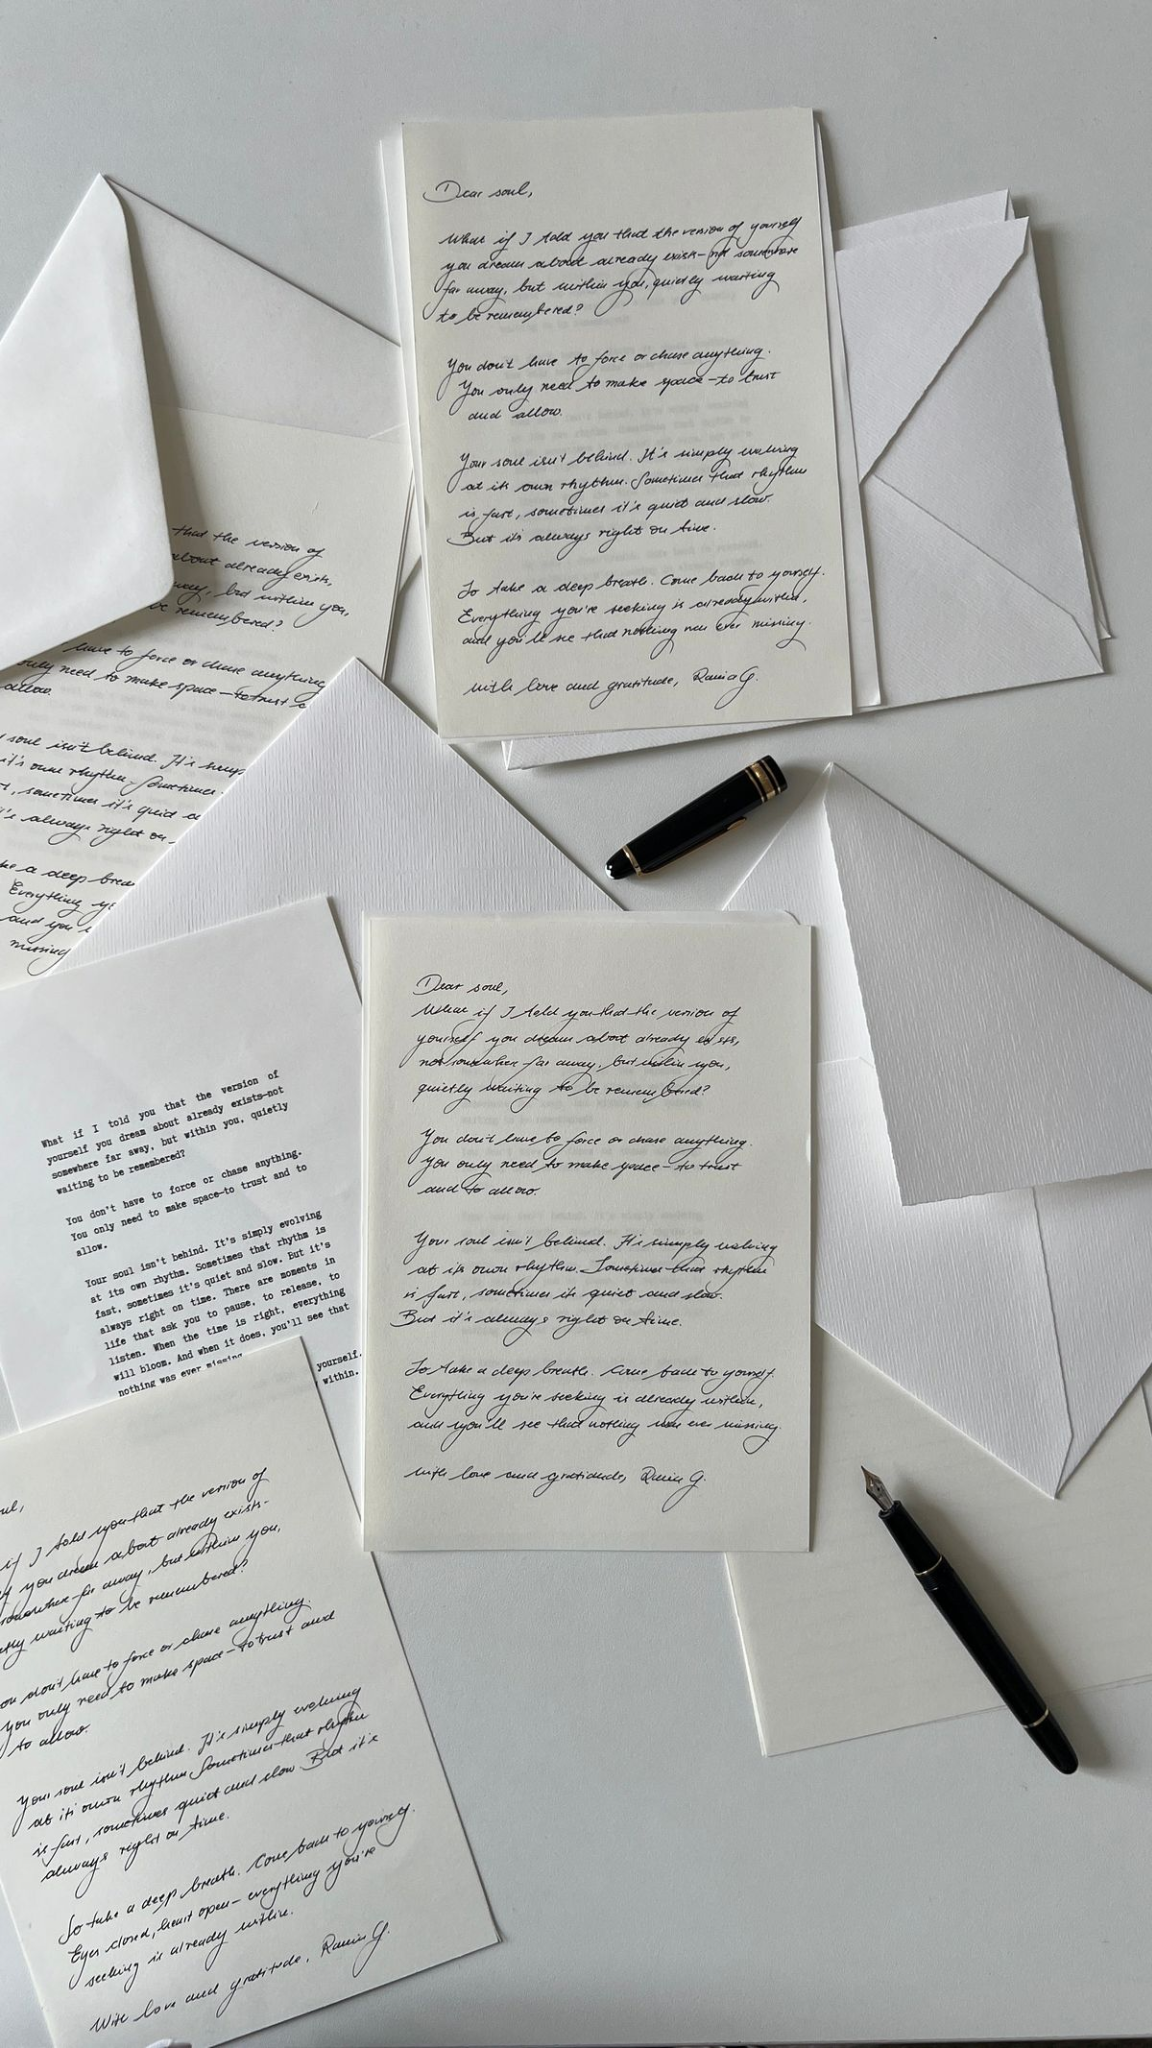 Dear soul,
What if I told you that the version of yourself
you dream about already exist—not somewhere
far away, but within you, quietly waiting
to be remembered?
You don't have to force or chase anything.
You only need to make space—to trust
and allow.
Your soul isn't behind. It's simply evolving
at its own rhythm. Sometimes that rhythm
is fast, sometimes it's quiet and slow.
But it's always right on time.
So take a deep breath. Come back to yourself.
Everything you're seeking is already within,
and you'll see that nothing was ever missing.
with love and gratitude, Rania G.
that the version of
about already exists,
away, but within you,
be remembered?
have to force or chase anything
only need to make space—to trust
allow.
soul isn't behind. It's simply
it's own rhythm. Sometimes
sometimes it's quiet
always right on
a deep brea
Everything
and you
missing
Dear soul,
What if I told you that the version of
yourself you dream about already exists,
not somewhere far away, but within you,
quietly waiting to be remembered?
You don't have to force or chase anything.
You only need to make space—to trust
and to allow.
Your soul isn't behind. It's simply evolving
at its own rhythm. Sometimes that rhythm
is fast, sometimes its quiet and slow.
But it's always right on time.
So take a deep breath. Come back to yourself.
Everything you're seeking is already within,
and you'll see that nothing was ever missing.
with love and gratitude, Rania G.
What if I told you that the version of
yourself you dream about already exists—not
somewhere far away, but within you, quietly
waiting to be remembered?
You don't have to force or chase anything.
You only need to make space—to trust and to
allow.
Your soul isn't behind. It's simply evolving
at its own rhythm. Sometimes that rhythm is
fast, sometimes it's quiet and slow. But it's
always right on time. There are moments in
life that ask you to pause, to release, to
listen. When the time is right, everything
will bloom. And when it does, you'll see that
nothing was ever missing.
yourself.
within.
if I told you that the version of
you dream about already exists-
somewhere far away, but within you,
waiting to be remembered?
You don't have to force or chase anything.
You only need to make space—to trust and
to allow.
Your soul isn't behind. It's simply evolving
at its own rhythm. Sometimes that rhythm
is fast, sometimes quiet and slow. But it's
always right on time.
So take a deep breath. Come back to yourself.
Eyes closed, heart open—everything you're
seeking is already within.
With love and gratitude, Rania G.